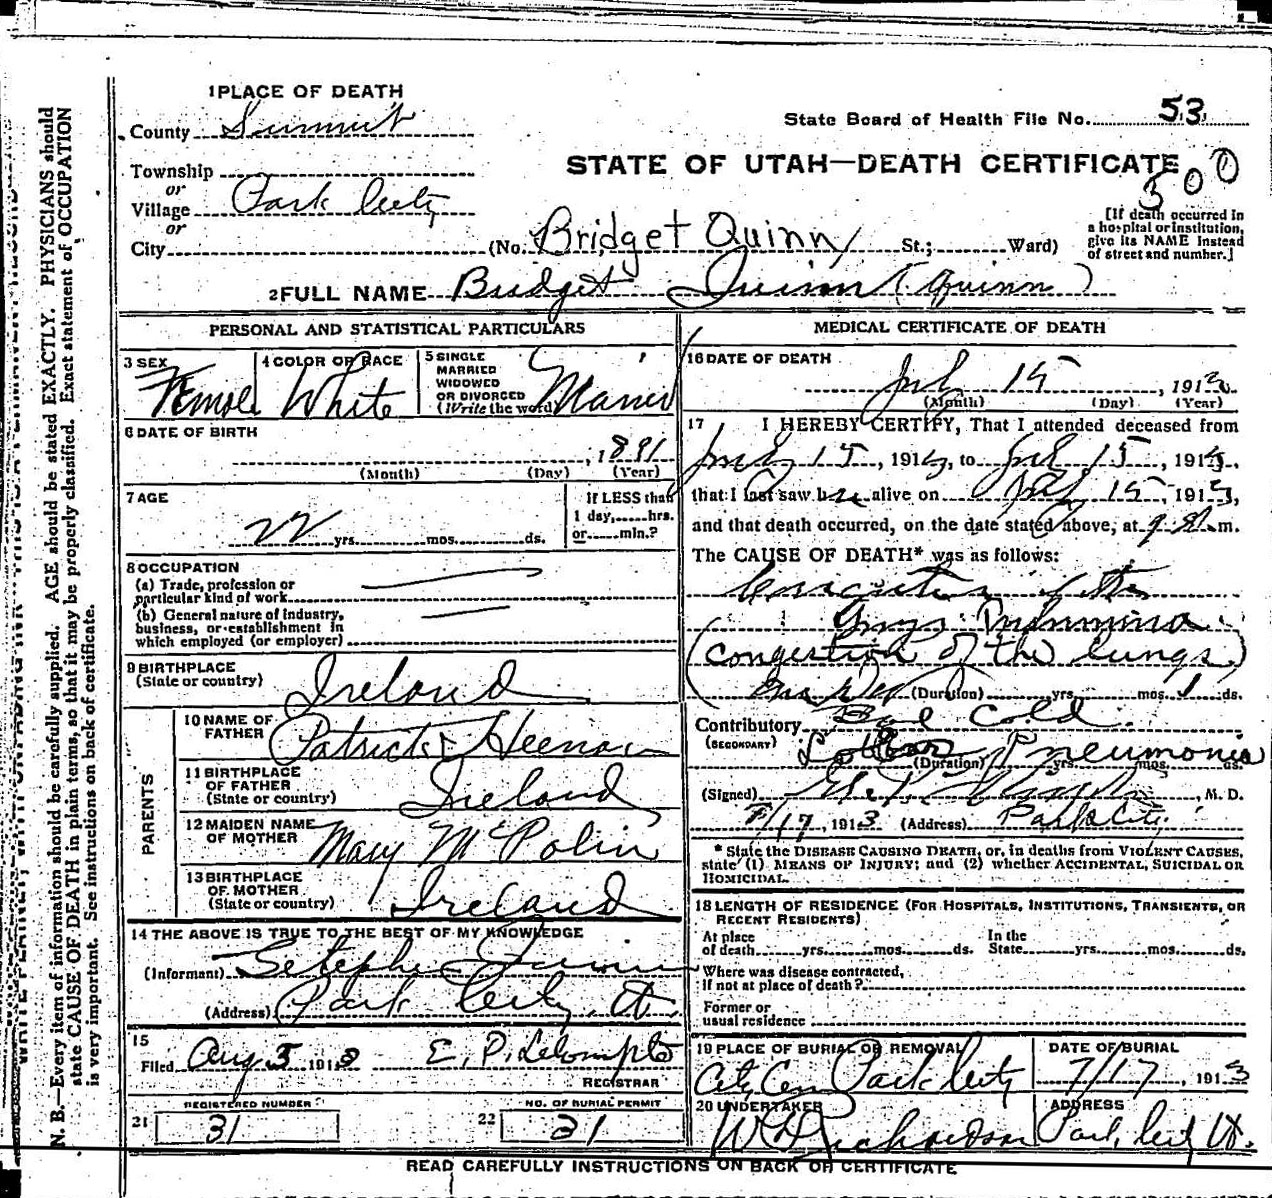 1 PLACE OF DEATH
County Summit
State Board of Health File No. 53
STATE OF UTAH—DEATH CERTIFICATE
500
Township
or
Village Park City
or
City (No. Bridget Quinn St.; Ward)
[If death occurred in
a hospital or institution,
give its NAME instead
of street and number.]
2 FULL NAME Bridget Quinn (Quinn)
PERSONAL AND STATISTICAL PARTICULARS
3 SEX
Female
4 COLOR OR RACE
White
5 SINGLE
MARRIED
WIDOWED
OR DIVORCED
(Write the word)
Married
6 DATE OF BIRTH
, 1891
(Month) (Day) (Year)
7 AGE
22 yrs. mos. ds.
If LESS than
1 day, hrs.
or min.?
8 OCCUPATION
(a) Trade, profession or
particular kind of work
(b) General nature of industry,
business, or establishment in
which employed (or employer)
9 BIRTHPLACE
(State or country)
Ireland
PARENTS
10 NAME OF
FATHER
Patrick Heenan
11 BIRTHPLACE
OF FATHER
(State or country)
Ireland
12 MAIDEN NAME
OF MOTHER
Mary McPolin
13 BIRTHPLACE
OF MOTHER
(State or country)
Ireland
14 THE ABOVE IS TRUE TO THE BEST OF MY KNOWLEDGE
(Informant) Quinn
(Address) Park City, Ut.
15
Filed Aug 5 1913 E. P. LeCompte
REGISTRAR
REGISTERED NUMBER
21 31
NO. OF BURIAL PERMIT
22 31
MEDICAL CERTIFICATE OF DEATH
16 DATE OF DEATH
July 15, 1913
(Month) (Day) (Year)
17 I HEREBY CERTIFY, That I attended deceased from
July 15, 1913, to July 15, 1913,
that I last saw her alive on July 15, 1913,
and that death occurred, on the date stated above, at m.
The CAUSE OF DEATH* was as follows:
(congestion of the lungs)
(Duration) yrs. mos. 1 ds.
Contributory Bad Cold
(SECONDARY) Lobar Pneumonia
(Duration) yrs. mos. ds.
(Signed) , M. D.
7/17, 1913 (Address) Park City,
* State the DISEASE CAUSING DEATH, or, in deaths from VIOLENT CAUSES,
state (1) MEANS OF INJURY; and (2) whether ACCIDENTAL, SUICIDAL OR
HOMICIDAL.
18 LENGTH OF RESIDENCE (FOR HOSPITALS, INSTITUTIONS, TRANSIENTS, OR
RECENT RESIDENTS)
At place
of death yrs. mos. ds.
In the
State yrs. mos. ds.
Where was disease contracted,
if not at place of death?
Former or
usual residence
19 PLACE OF BURIAL OR REMOVAL
City Cem Park City
DATE OF BURIAL
7/17, 1913
20 UNDERTAKER
Richardson
ADDRESS
Park City Ut.
READ CAREFULLY INSTRUCTIONS ON BACK OF CERTIFICATE
N. B.—Every item of information should be carefully supplied. AGE should be stated EXACTLY. PHYSICIANS should
state CAUSE OF DEATH in plain terms, so that it may be properly classified. Exact statement of OCCUPATION
is very important. See instructions on back of certificate.